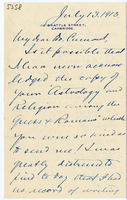 5058
July 13, 1913.
SEATTLE STREET,
CAMBRIDGE.
My dear Dr. Cumont,
Is it possible that
I have never acknow-
ledged the copy of
your Astrology and
Religion among the
Greeks & Romans which
you were so kind as
to send me! I was
greatly distressed to
find to-day that I had
no record of writing